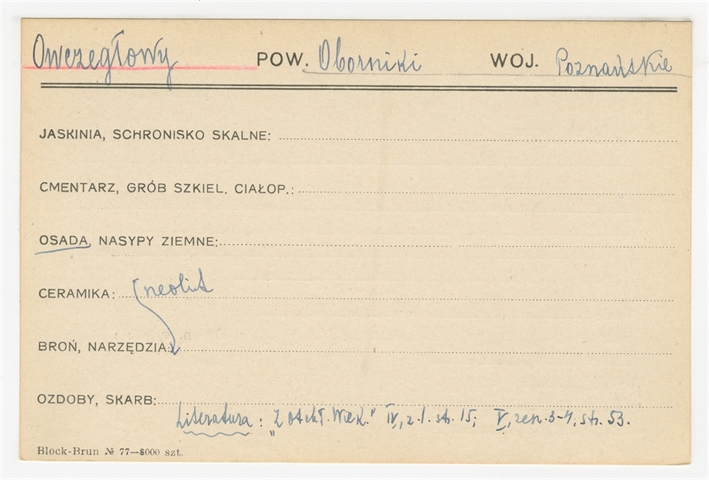 Owczegłowy POW. Oborniki WOJ. Poznańskie
JASKINIA, SCHRONISKO SKALNE:
CMENTARZ, GRÓB SZKIEL. CIAŁOP.:
OSADA, NASYPY ZIEMNE:
CERAMIKA: neolit
BROŃ, NARZĘDZIA:
OZDOBY, SKARB:
Literatura: "Z otchł. Wiek." IV, z.1. str. 15; V, zesz. 3-4, str. 53.
Block-Brun № 77—8000 szt.